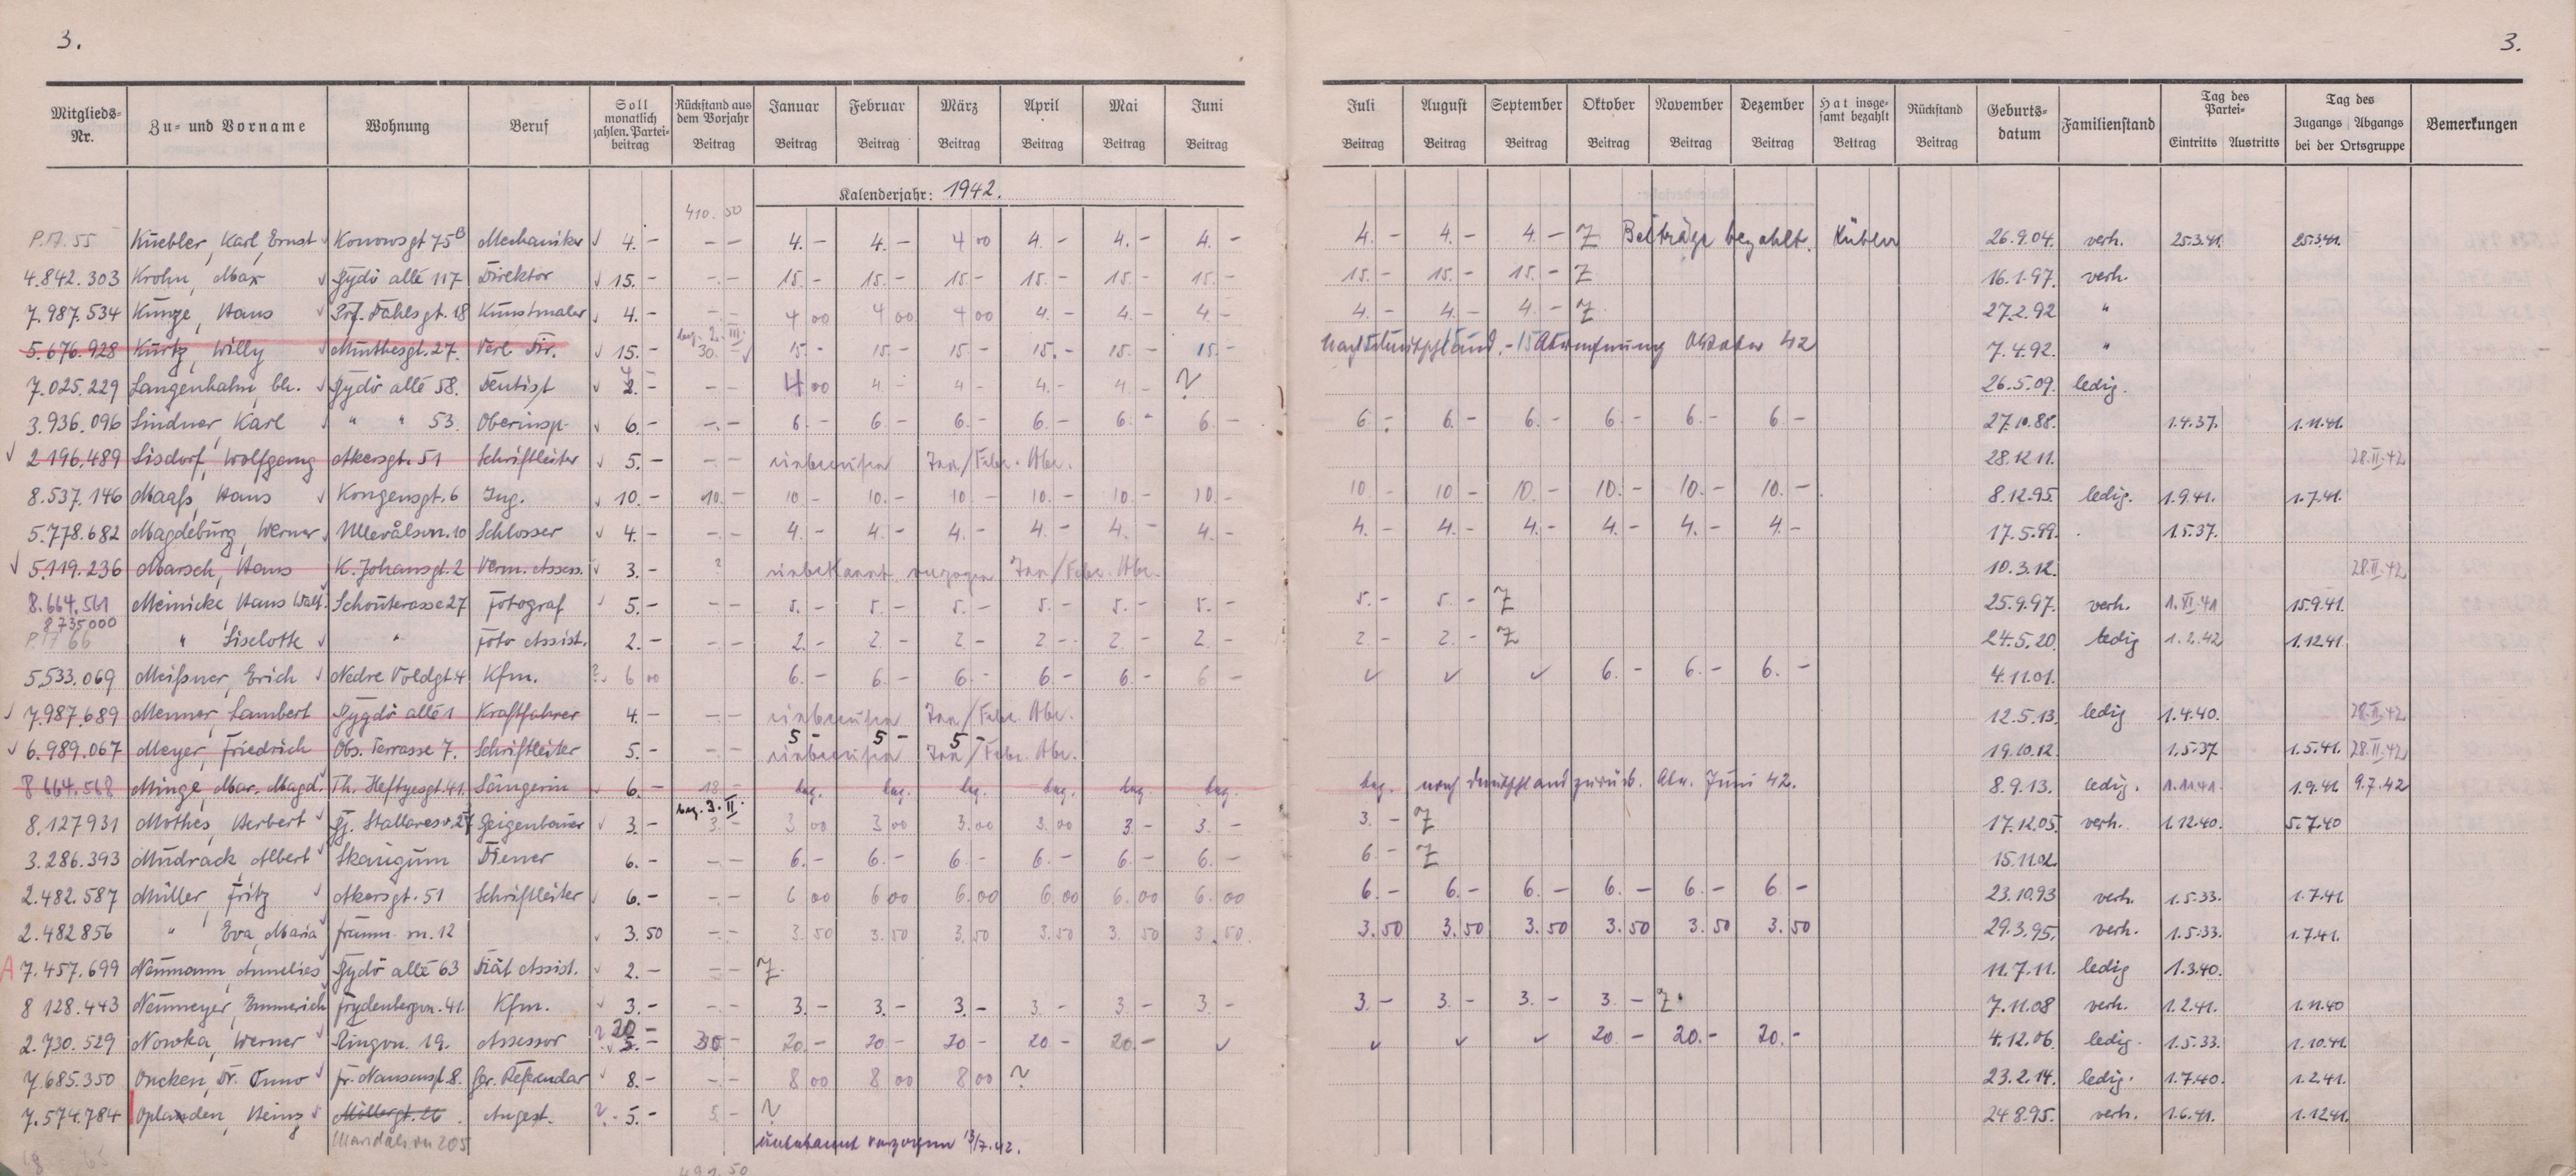 3. 3.
Mitglieds-Nr. Zu- und Vorname Wohnung Beruf Soll monatlich zahlen. Partei-beitrag Rückstand aus dem Vorjahr Beitrag Januar Beitrag Februar Beitrag März Beitrag April Beitrag Mai Beitrag Juni Beitrag Juli Beitrag August Beitrag September Beitrag Oktober Beitrag November Beitrag Dezember Beitrag Hat insge-samt bezahlt Beitrag Rückstand Beitrag Geburts-datum Familienstand Tag des Partei- Eintritts Austritts Tag des Zugangs Abgangs bei der Ortsgruppe Bemerkungen
Kalenderjahr: 1942.
410. 50
P.17.55 Kuebler, Karl, Ernst Konowsgt 75B Mechaniker 4.- -- 4.- 4.- 4 00 4.- 4.- 4.- 4.- 4.- 4.- Z Beiträge bezahlt. Kübler 26.9.04. verh. 25.3.41. 25.3.41.
4.842.303 Krohn, Max Bygdö allé 117 Direktor 15.- -.- 15.- 15.- 15.- 15.- 15.- 15.- 15.- 15.- 15.- Z 16.1.97. verh.
7.987.534 Kunze, Hans Prf. Dahlsgt. 18 Kunstmaler 4.- -.- 4 00 4 00 4 00 4.- 4.- 4.- 4.- 4.- 4.- Z 27.2.92 "
bez. 2. III.
5.676.928 Kurtz, Willy Munthesgt. 27. Verl. Dir. 15.- 30.- 15.- 15.- 15.- 15.- 15.- 15.- nach Deutschland. Oktober 42 7.4.92. "
7.025.229 Langenhahn, Bygdö allé 58. Dentist 2.- -- 4 00 4.- 4.- 4.- 4.- ? 26.5.09. ledig.
3.936.096 Lindner, Karl " " 53. Oberinsp. 6.- -.- 6.- 6.- 6.- 6.- 6.- 6.- 6.- 6.- 6.- 6.- 6.- 6.- 27.10.88. 1.4.37. 1.11.41.
2 196.489 Lisdorf, Wolfgang Akersgt. 51 Schriftleiter 5.- -- einberufen Jan/Febr. Abr. 28.12.11. 28.II.42
8.537.146 Maaß, Hans Kongensgt. 6 Ing. 10.- 10.- 10.- 10.- 10.- 10.- 10.- 10.- 10.- 10.- 10.- 10.- 10.- 10.- 8.12.95. ledig. 1.9.41. 1.7.41.
5.778.682 Magdeburg, Werner Ullevålsvn. 10 Schlosser 4.- -.- 4.- 4.- 4.- 4.- 4.- 4.- 4.- 4.- 4.- 4.- 4.- 4.- 17.5.99. 1.5.37.
5.119.236 Marsch, Hans K. Johansgt. 2 Verm. Assess. 3.- ? unbekannt verzogen Jan/Febr. Abr. 10.3.12. 28.II.42
8.664.561 Meinicke, Hans Walt. Schouterasse 27 Fotograf 5.- -- 5.- 5.- 5.- 5.- 5.- 5.- 5.- 5.- Z 25.9.97. verh. 1.VI.41 15.9.41.
8735000
P.17 66 " Liselotte " Foto Assist. 2.- -- 2.- 2.- 2.- 2.- 2.- 2.- 2.- 2.- Z 24.5.20. ledig 1.2.42 1.12.41
5.533.069 Meißner, Erich Nedre Voldgt. 4 Kfm. ? 6 00 6.- 6.- 6.- 6.- 6.- 6.- ✓ ✓ ✓ 6.- 6.- 6.- 4.11.01.
7.987.689 Menner, Lambert Bygdö allé 1 Kraftfahrer 4.- -.- einberufen Jan/Febr. Abr. 12.5.13. ledig 1.4.40. 28.II.42
6.989.067 Meyer, Friedrich Obs. Terrasse 7. Schriftleiter 5.- -.- 5- 5- 5- einberufen Jan/Febr. Abr. 19.10.12. 1.5.37 1.5.41. 28.II.42
8 664.568 Minge, Mar. Magd. Th. Heftyesgt. 41. Sängerin 6.- 18.- bez. bez. bez. bez. bez. bez. bez. nach Deutschland zurück. Abr. Juni 42. 8.9.13. ledig. 1.11.41. 1.9.41 9.7.42
bez. 3. II.
8.127931 Mothes, Herbert Gj. Stallaresv. 27 Geigenbauer 3.- 3.- 3 00 3 00 3.00 3.00 3.- 3.- 3.- Z 17.12.05. verh. 1.12.40. 5.7.40
3.286.393 Mudrack, Albert Skaugum Diener 6.- -- 6.- 6.- 6.- 6.- 6.- 6.- 6.- Z 15.11.02.
2.482.587 Müller, Fritz Akersgt. 51 Schriftleiter 6.- -.- 6 00 6 00 6.00 6.00 6.00 6.00 6.- 6.- 6.- 6.- 6.- 6.- 23.10.93 verh. 1.5.33. 1.7.41.
2.482856 " Eva, Maria Framn. vn. 12 3.50 -- 3.50 3.50 3.50 3.50 3.50 3.50 3.50 3.50 3.50 3.50 3.50 3.50 29.3.95. verh. 1.5.33. 1.7.41.
A 7.457.699 Neumann, Annelies Bygdö allé 63 Diät Assist. 2.- -- Z. 11.7.11. ledig 1.3.40.
8 128.443 Neumeyer, Emmerich Frydenbergvn. 41. Kfm. 3.- -- 3.- 3.- 3.- 3.- 3.- 3.- 3.- 3.- 3.- 3.- Z. 7.11.08 verh. 1.2.41. 1.11.40
2.730.529 Nowka, Werner Ringvn. 19. Assessor 20.- 5.- 30- 20.- 20.- 20- 20- 20.- ✓ ✓ ✓ ✓ 20.- 20.- 20.- 4.12.06. ledig. 1.5.33. 1.10.41.
7.685.350 Oncken, Dr. Onno Fr. Nansenspl. 8. Ger. Referendar 8.- -.- 8 00 8 00 8 00 ? 23.2.14. ledig. 1.7.40. 1.2.41.
7.574.784 Oplanden, Heinz Möllergt. 26. Angest. ? 5.- 5.- ? 24.8.95. verh. 1.6.41. 1.12.41.
Mandals vn 205 unbekannt verzogen 13/7.42.
491.50